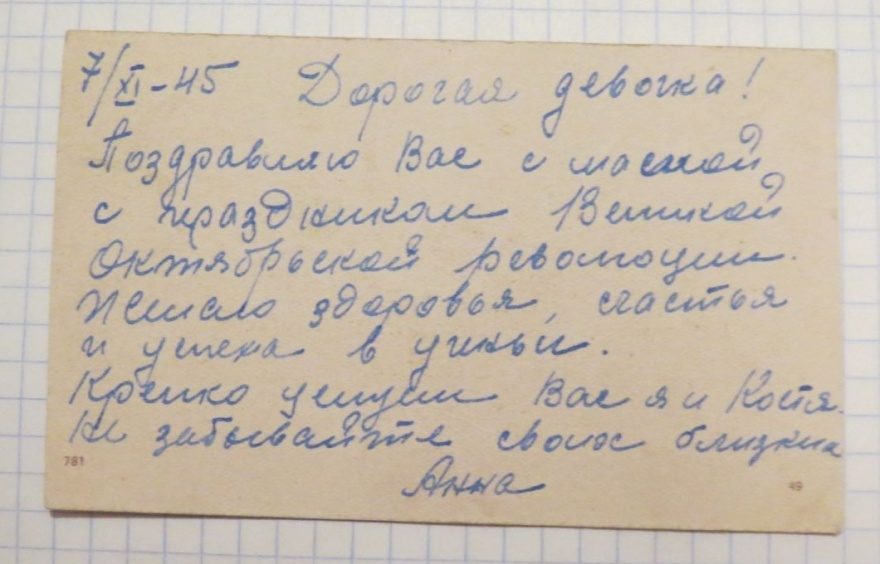 7/XI-45 Дорогая девочка!
Поздравляю Вас с мамой
с праздником Великой
Октябрьской революции.
Желаю здоровья, счастья
и успеха в учёьи.
Крепко целуем Вас я и Костя.
Не забывайте своих близких
Анна
781
49